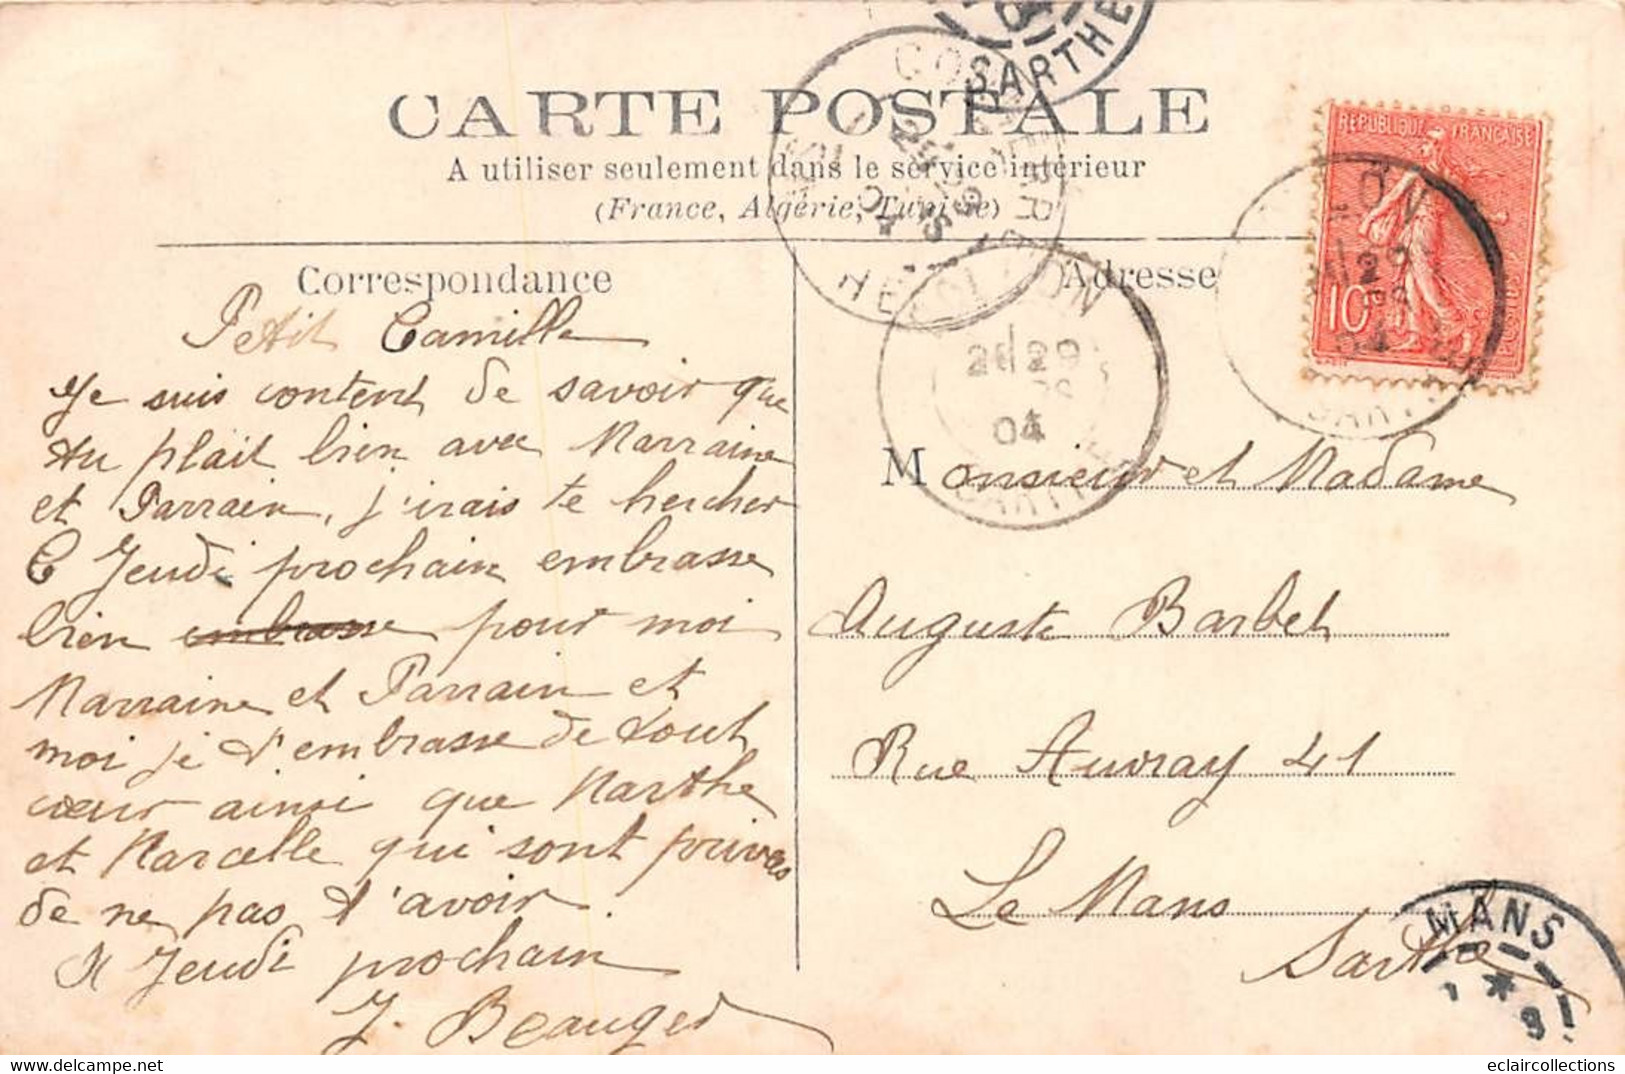 CARTE POSTALE
A utiliser seulement dans le service intérieur
(France, Algérie, Tunisie)
Correspondance
Petit Camille
Je suis content de savoir que
tu plait bien avec Marraine
et Parrain, j'irais te hercher
C Jeudi prochain embrasse
bien embrasse pour moi
Marraine et Parrain et
moi je t'embrasse de tout
cœur ainsi que Marthe
et Marcelle qui sont privées
de ne pas t'avoir.
A Jeudi prochain
J. Beauger
Adresse
Monsieur et Madame
Auguste Barbet
Rue Auvray 41
Le Mans
Sarthe
REPUBLIQUE FRANÇAISE
10c
SARTHE
29
04
MANS
eclaircollections